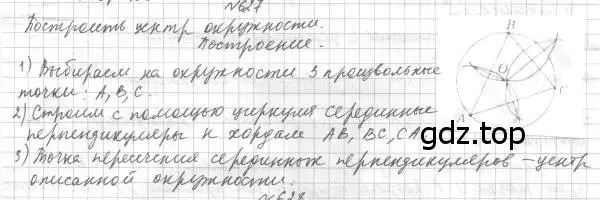 №627
Построить центр окружности.
Построение.
1) Выбираем на окружности 3 произвольные
точки: A, B, C.
2) Строим с помощью циркуля серединные
перпендикуляры к хордам AB, BC, CA
3) Точка пересечения серединных перпендикуляров – центр
описанной окружности.
B
O
C
A
gdz.top
№628